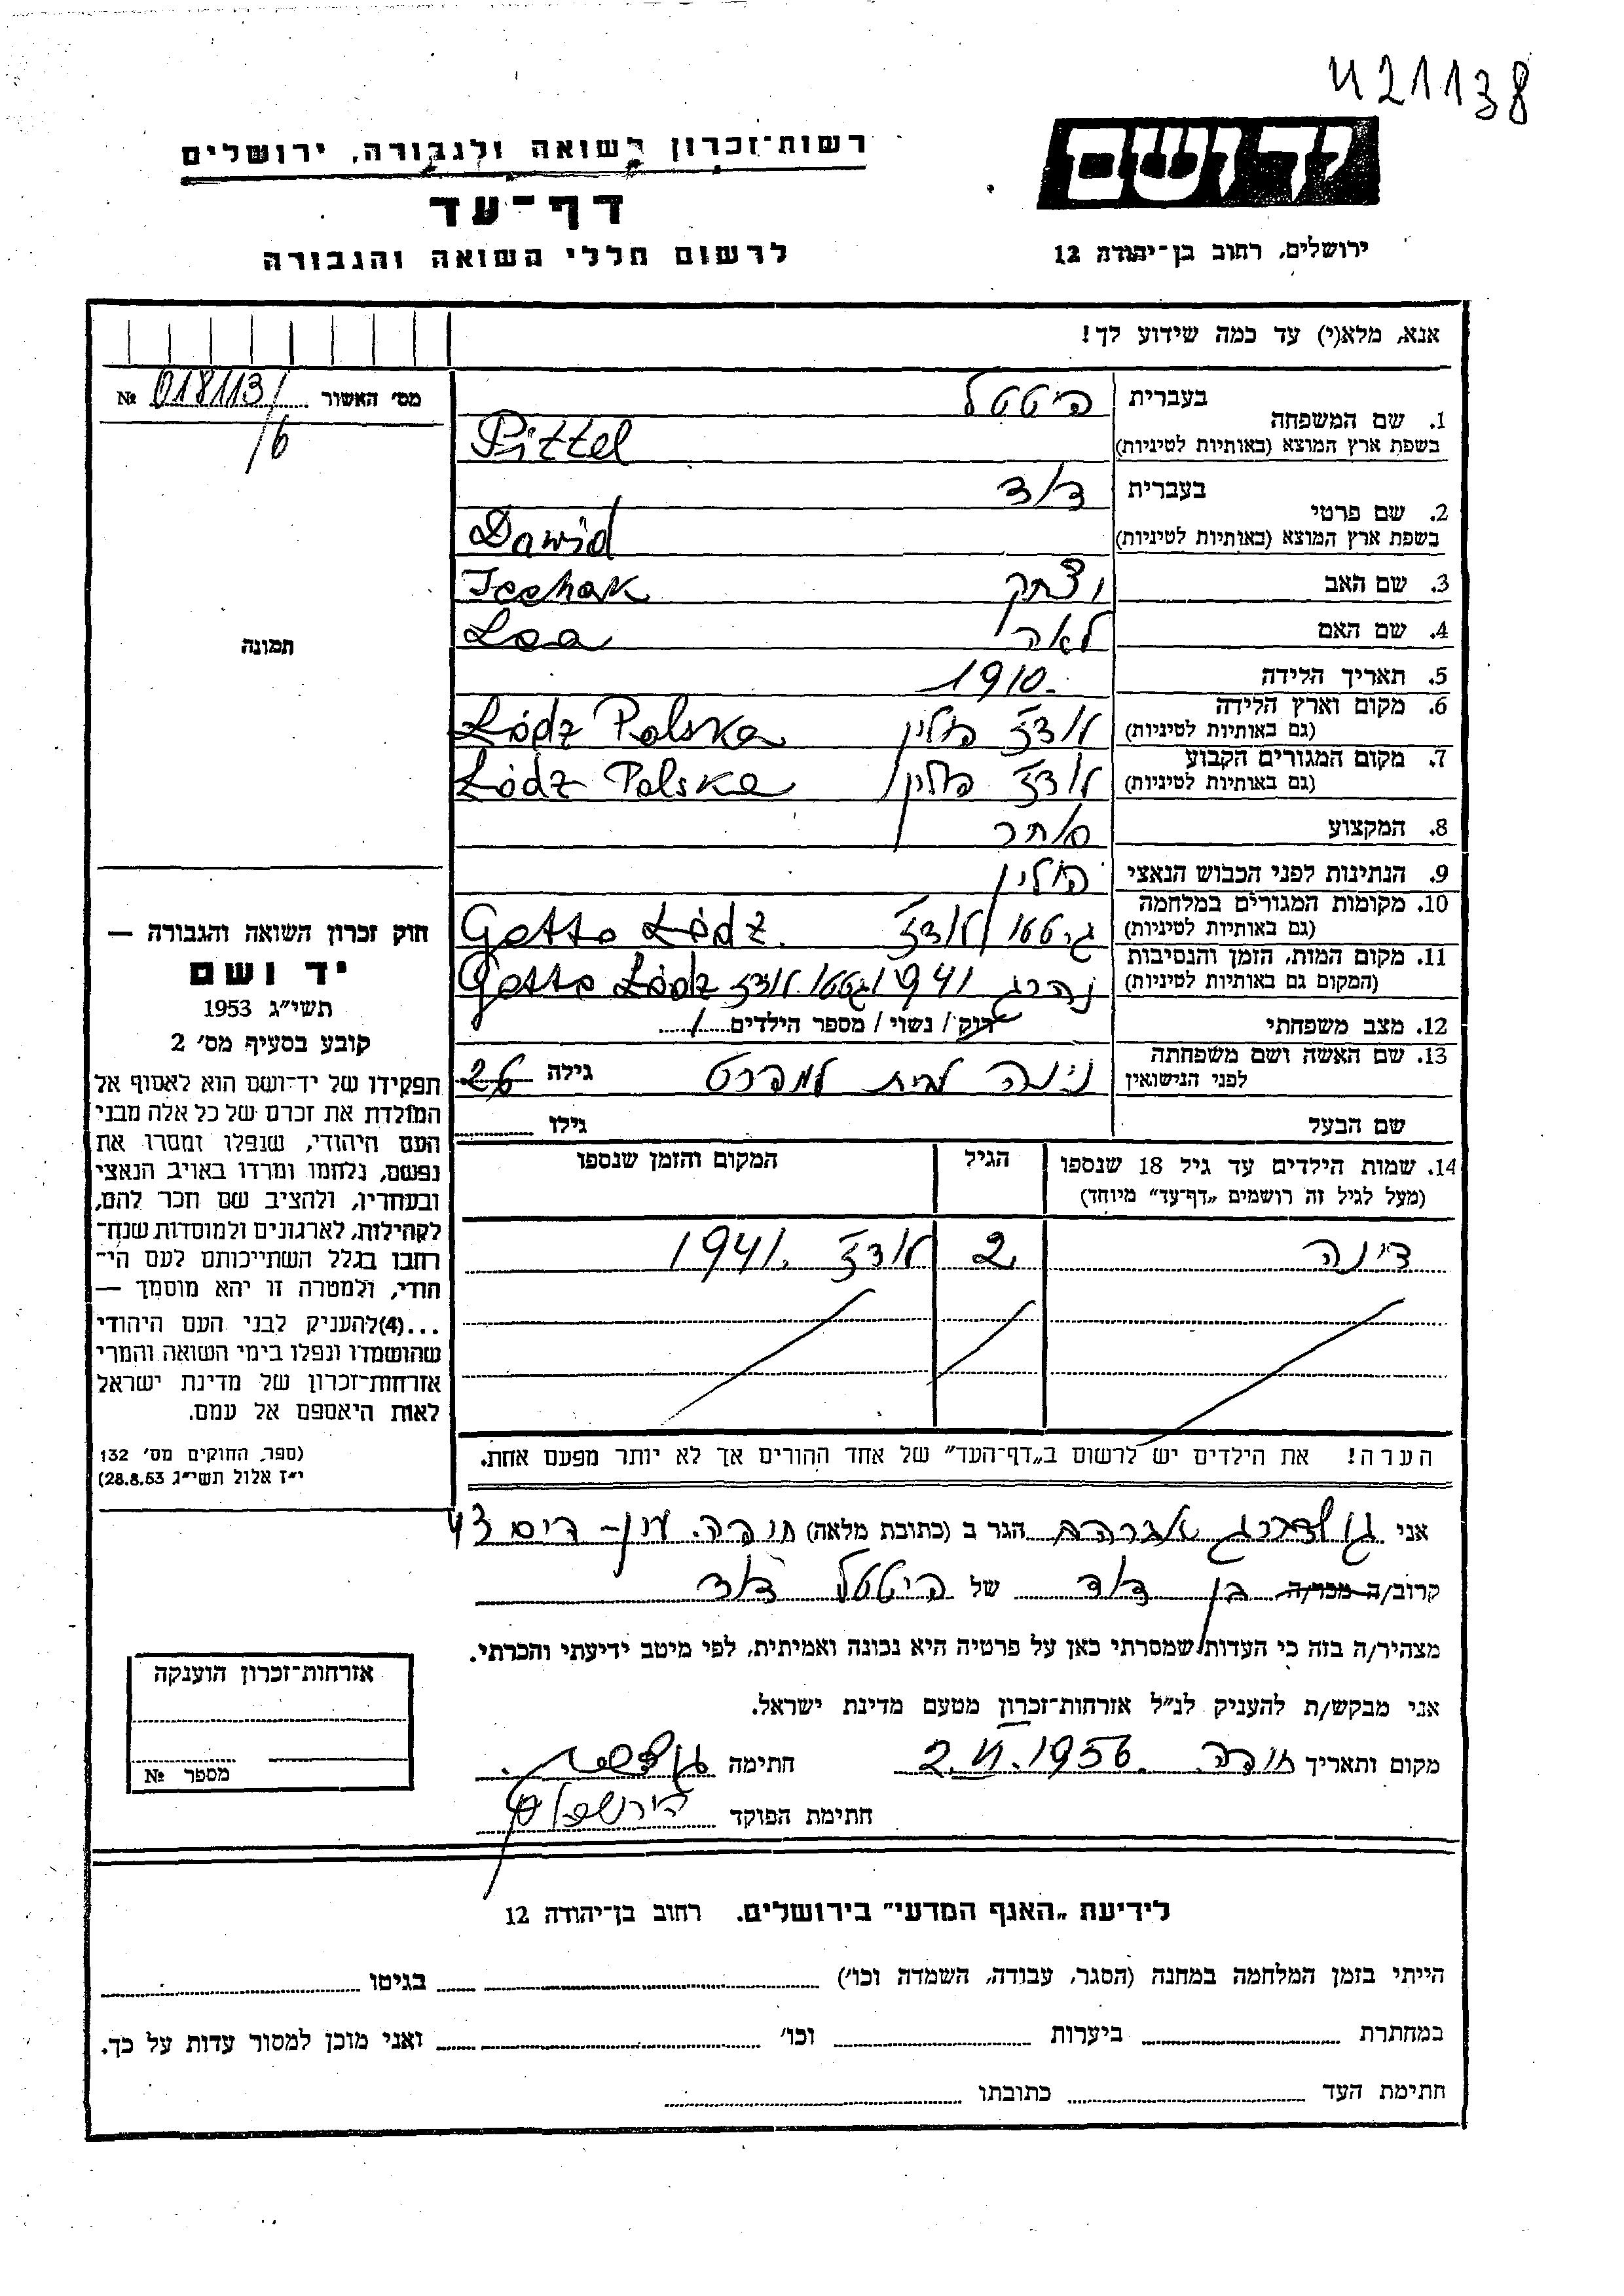 421138
יד ושם
ירושלים, רחוב בן־יהודה 12
רשות־זכרון לשואה ולגבורה, ירושלים
דף־עד
לרשום חללי השואה והגבורה
אנא, מלא(י) עד כמה שידוע לך!
מס׳ האשור № 018113/
/6
תמונה
1. שם המשפחה
בעברית פיטטל
בשפת ארץ המוצא (באותיות לטיניות) Pittel
2. שם פרטי
בעברית דוד
בשפת ארץ המוצא (באותיות לטיניות) Dawid
3. שם האב יצחק Icchak
4. שם האם לאה Lea
5. תאריך הלידה 1910.
6. מקום וארץ הלידה לודז פולין Łódz Polska
(גם באותיות לטיניות)
7. מקום המגורים הקבוע לודז פולין Łódz Polska
(גם באותיות לטיניות)
8. המקצוע סוחר
9. הנתינות לפני הכבוש הנאצי פולין
10. מקומות המגורים במלחמה גיטטו לודז Getto Łódz.
(גם באותיות לטיניות)
11. מקום המות, הזמן והנסיבות נהרג 1941 גטטו לודז Getto Łódz
(המקום גם באותיות לטיניות)
12. מצב משפחתי רווק / נשוי / מספר הילדים 1
13. שם האשה ושם משפחתה לפני הנישואין לבית גילה 26
שם הבעל גילו
14. שמות הילדים עד גיל 18 שנספו הגיל המקום והזמן שנספו
(מעל לגיל זה רושמים „דף־עד״ מיוחד)
דינה 2 לודז 1941.
הערה! את הילדים יש לרשום ב„דף־העד״ של אחד ההורים אך לא יותר מפעם אחת.
חוק זכרון השואה והגבורה —
יד ושם
תשי״ג 1953
קובע בסעיף מס׳ 2
תפקידו של יד־ושם הוא לאסוף אל
המולדת את זכרם של כל אלה מבני
העם היהודי, שנפלו ומסרו את
נפשם, נלחמו ומרדו באויב הנאצי
ובעוזריו, ולהציב שם וזכר להם,
לקהילות, לארגונים ולמוסדות שנח־
רבו בגלל השתייכותם לעם הי־
הודי, ולמטרה זו יהא מוסמך —
...(4) להעניק לבני העם היהודי
שהושמדו ונפלו בימי השואה והמרי
אזרחות־זכרון של מדינת ישראל
לאות היאספם אל עמם.
(ספר החוקים מס׳ 132
י״ז אלול תשי״ג 28.8.53)
אני גולדברג אברהם הגר ב (כתובת מלאה) חדרה. 43
קרוב/ה מכר/ה בן דוד של פיטטל דוד
מצהיר/ה בזה כי העדות שמסרתי כאן על פרטיה היא נכונה ואמיתית, לפי מיטב ידיעתי והכרתי.
אני מבקש/ת להעניק לנ״ל אזרחות־זכרון מטעם מדינת ישראל.
מקום ותאריך חדרה 2.VI.1956 חתימה
חתימת הפוקד
אזרחות־זכרון הוענקה
מספר №
לידיעת „האגף המדעי״ בירושלים. רחוב בן־יהודה 12
הייתי בזמן המלחמה במחנה (הסגר, עבודה, השמדה וכו׳) בגיטו
במחתרת ביערות וכו׳ ואני מוכן למסור עדות על כך.
חתימת העד כתובתו